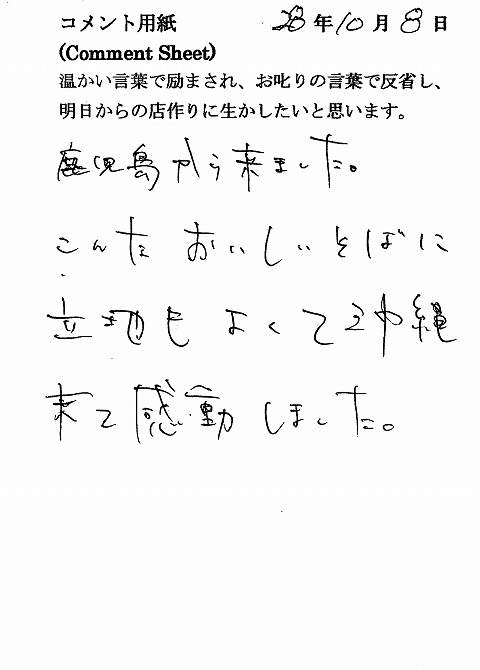 コメント用紙 28年10月8日
(Comment Sheet)
温かい言葉で励まされ、お叱りの言葉で反省し、
明日からの店作りに生かしたいと思います。
鹿児島から来ました。
こんな おいしい そばに
立地も よくて 沖縄
来て感動 しました。